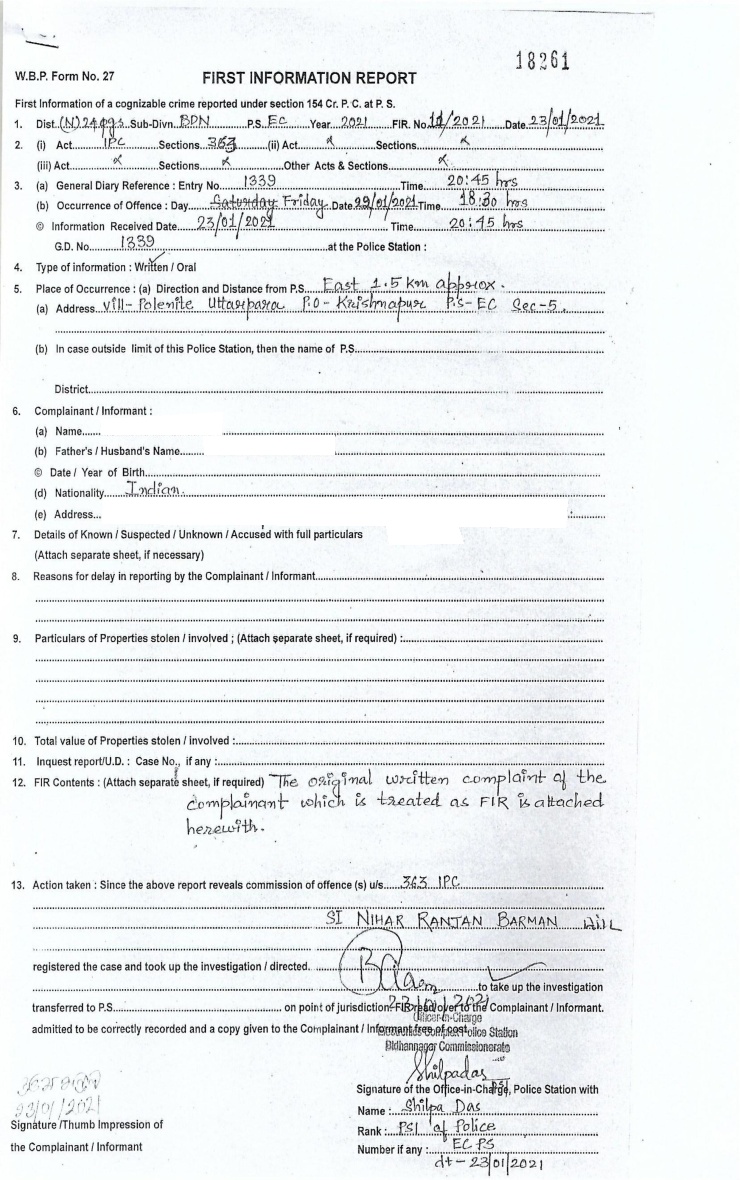 18261
W.B.P. Form No. 27 FIRST INFORMATION REPORT
First Information of a cognizable crime reported under section 154 Cr. P. C. at P. S.
1. Dist. (N) 24 pgs Sub-Divn. BDN P.S. EC Year 2021 FIR. No. 11/2021 Date 23/01/2021
2. (i) Act IPC Sections 363 (ii) Act x Sections x
(iii) Act x Sections x Other Acts & Sections x
3. (a) General Diary Reference : Entry No. 1339 Time 20:45 hrs
(b) Occurrence of Offence : Day Saturday Friday Date 29/01/2021 Time 18:30 hrs
© Information Received Date 23/01/2021 Time 20:45 hrs
G.D. No. 1339 at the Police Station :
4. Type of information : Written / Oral
5. Place of Occurrence : (a) Direction and Distance from P.S. East 1.5 km approx.
(a) Address vill- Polenite Uttarpara P.O- Krishnapur P.S- EC Sec-5
(b) In case outside limit of this Police Station, then the name of P.S.
District
6. Complainant / Informant :
(a) Name
(b) Father's / Husband's Name
© Date / Year of Birth
(d) Nationality Indian.
(e) Address
7. Details of Known / Suspected / Unknown / Accused with full particulars
(Attach separate sheet, if necessary)
8. Reasons for delay in reporting by the Complainant / Informant
9. Particulars of Properties stolen / involved ; (Attach separate sheet, if required) :
10. Total value of Properties stolen / involved :
11. Inquest report/U.D. : Case No., if any :
12. FIR Contents : (Attach separate sheet, if required) The original written complaint of the
complainant which is treated as FIR is attached
herewith.
13. Action taken : Since the above report reveals commission of offence (s) u/s 363 IPC
SI NIHAR RANJAN BARMAN
registered the case and took up the investigation / directed.
to take up the investigation
transferred to P.S. on point of jurisdiction FIR read over to the Complainant / Informant.
Officer-in-Charge
admitted to be correctly recorded and a copy given to the Complainant / Informant free of cost Police Station
Bidhannagar Commissionerate
Shilpadas
23/01/2021
Signature of the Office-in-Charge, Police Station with
Name : Shilpa Das
Signature /Thumb Impression of
Rank : PSI of Police
the Complainant / Informant
Number if any : EC PS
dt - 23/01/2021